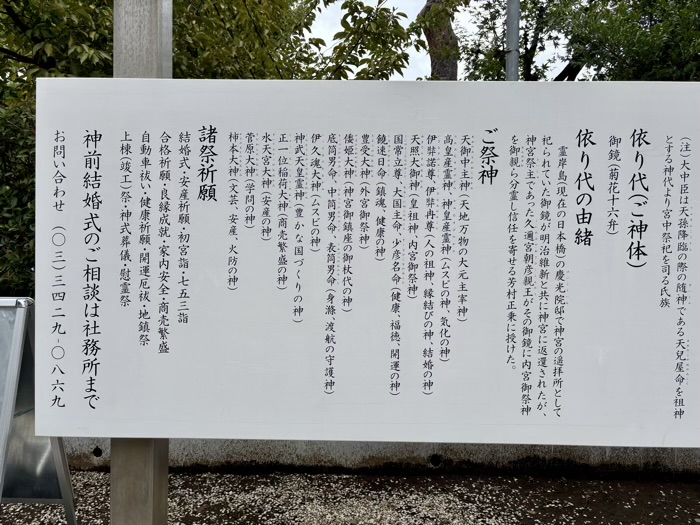 （注）大中臣は天孫降臨の際の随神である天兒屋命を祖神
とする神代より宮中祭祀を司る氏族
依り代（ご神体）
御鏡（菊花十六弁）
依り代の由緒
霊岸島（現在の日本橋）の慶光院邸で神宮の遥拝所として
祀られていた御鏡が明治維新と共に神宮に返還されたが、
神宮祭主であった久邇宮朝彦親王がその御鏡に内宮御祭神
を御親ら分霊し信任を寄せる芳村正秉に授けた。
ご祭神
天御中主神（天地万物の大元主宰神）
高皇産霊神、神皇産霊神（ムスビの神、気化の神）
伊弉諾尊、伊弉冉尊（人の祖神、縁結びの神、結婚の神）
天照大御神（皇祖神、内宮御祭神）
国常立尊、大国主命、少彦名命（健康、福徳、開運の神）
饒速日命（鎮魂、健康の神）
豊受大神（外宮御祭神）
倭姫大神（神宮御鎮座の御杖代の神）
底筒男命、中筒男命、表筒男命（身滌、渡航の守護神）
伊久魂大神（ムスビの神）
神武天皇霊神（豊かな国づくりの神）
正一位稲荷大神（商売繁盛の神）
水天宮大神（安産の神）
菅原大神（学問の神）
柿本大神（文芸、安産、火防の神）
諸祭祈願
結婚式・安産祈願・初宮詣・七五三詣
合格祈願・良縁成就・家内安全・商売繁盛
自動車祓い・健康祈願・開運厄祓・地鎮祭
上棟（竣工）祭・神式葬儀・慰霊祭
神前結婚式のご相談は社務所まで
お問い合わせ （〇三）三四二九-〇八六九